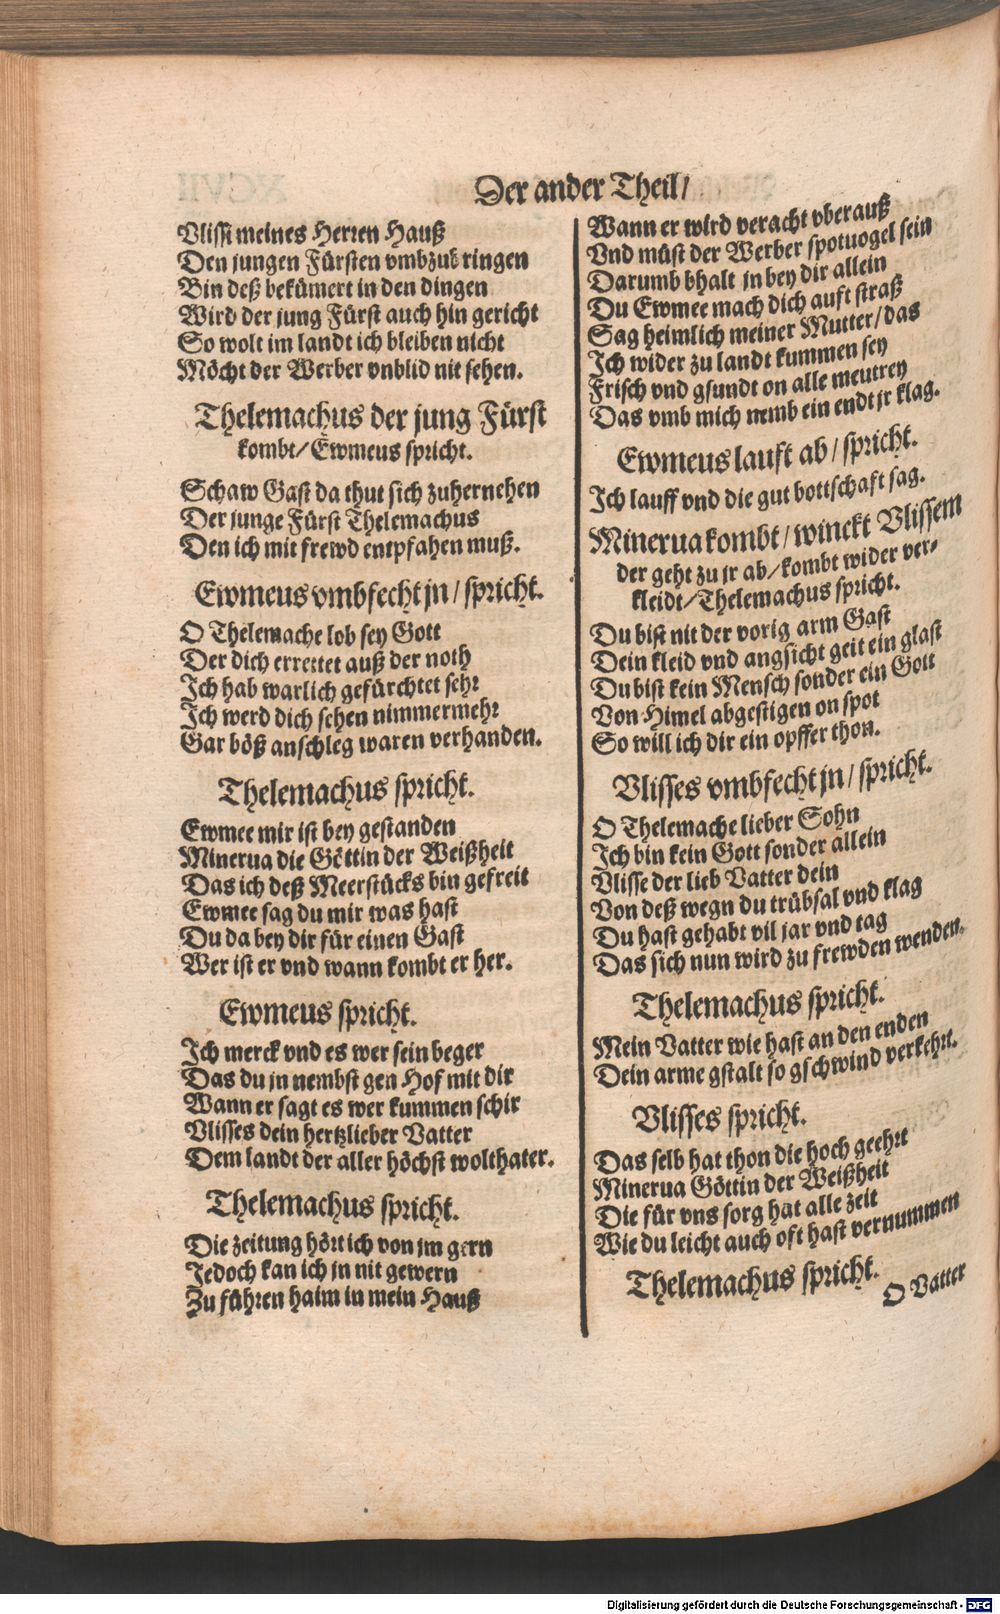 Der ander Theil/
Vlissi meines Herren Hauß
Den jungen Fürsten vmbzubringen
Bin deß bekümert in den dingen
Wird der jung Fürst auch hin gericht
So wolt im landt ich bleiben nicht
Möcht der Werber vnblid nit sehen.
Thelemachus der jung Fürst
kombt/Ewmeus spricht.
Schaw Gast da thut sich zuhernehen
Der junge Fürst Thelemachus
Den ich mit frewd entpfahen muß.
Ewmeus vmbfecht jn/spricht.
O Thelemache lob sey Gott
Der dich errettet auß der noth
Ich hab warlich gefürchtet sehr
Ich werd dich sehen nimmermehr
Gar böß anschleg waren verhanden.
Thelemachus spricht.
Ewmee mir ist bey gestanden
Minerua die Göttin der Weißheit
Das ich deß Meerstücks bin gefreit
Ewmee sag du mir was hast
Du da bey dir für einen Gast
Wer ist er vnd wann kombt er her.
Ewmeus spricht.
Ich merck vnd es wer sein beger
Das du jn nembst gen Hof mit dir
Wann er sagt es wer kummen schir
Vlisses dein hertzlieber Vatter
Dem landt der aller höchst wolthater.
Thelemachus spricht.
Die zeitung hört ich von jm gern
Jedoch kan ich jn nit gewern
Zu führen haim in mein Hauß
Wann er wird veracht vberauß
Vnd müst der Werber spotuogel sein
Darumb bhalt jn bey dir allein
Du Ewmee mach dich auft straß
Sag heimlich meiner Mutter/das
Ich wider zu landt kummen sey
Frisch vnd gsundt on alle meutrey
Das vmb mich nemb ein endt jr klag.
Ewmeus lauft ab/spricht.
Ich lauff vnd die gut bottschaft sag.
Minerua kombt/winckt Vlissem
der geht zu jr ab/kombt wider ver-
kleidt/Thelemachus spricht.
Du bist nit der vorig arm Gast
Dein kleid vnd angsicht geit ein glast
Du bist kein Mensch sonder ein Gott
Von Himel abgestigen on spot
So will ich dir ein opffer thon.
Vlisses vmbfecht jn/spricht.
O Thelemache lieber Sohn
Ich bin kein Gott sonder allein
Vlisse der lieb Vatter dein
Von deß wegn du trübsal vnd klag
Du hast gehabt vil jar vnd tag
Das sich nun wird zu frewden wenden.
Thelemachus spricht.
Mein Vatter wie hast an den enden
Dein arme gstalt so gschwind verkehrt.
Vlisses spricht.
Das selb hat thon die hoch geehrt
Minerua Göttin der Weißheit
Die für vns sorg hat alle zeit
Wie du leicht auch oft hast vernummen
Thelemachus spricht.
O Vatter
Digitalisierung gefördert durch die Deutsche Forschungsgemeinschaft - DFG